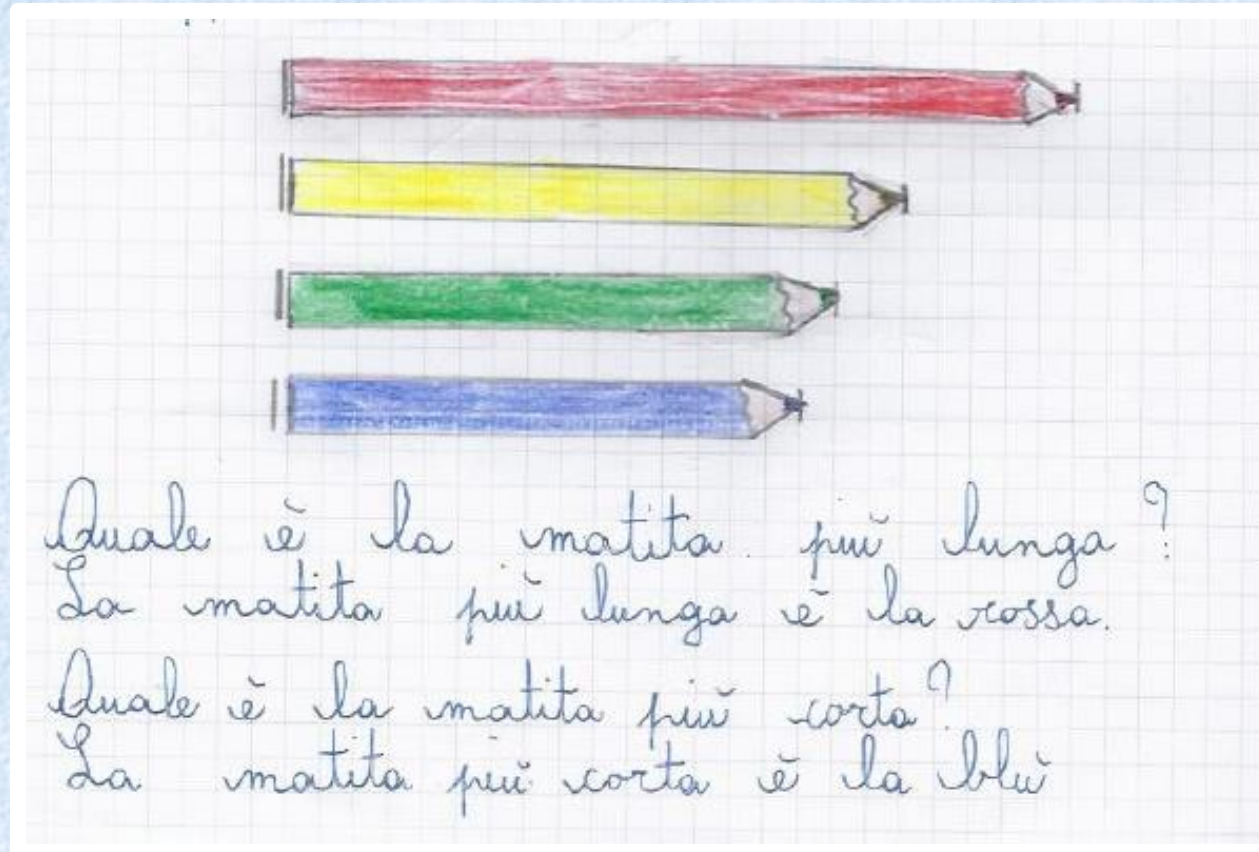 Quale è la matita più lunga?
La matita più lunga è la rossa.
Quale è la matita più corta?
La matita più corta è la blù